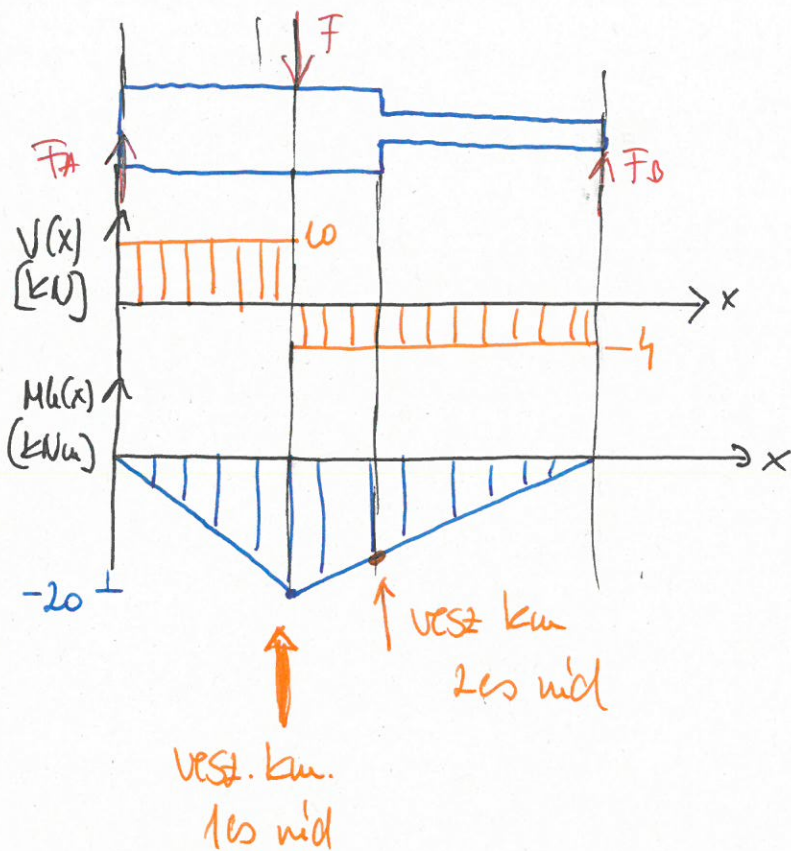 F
FA
FB
V(x)
[kN]
10
x
-4
Mh(x)
(kNm)
x
-20
vesz km
2es rúd
vesz. km.
1es rúd